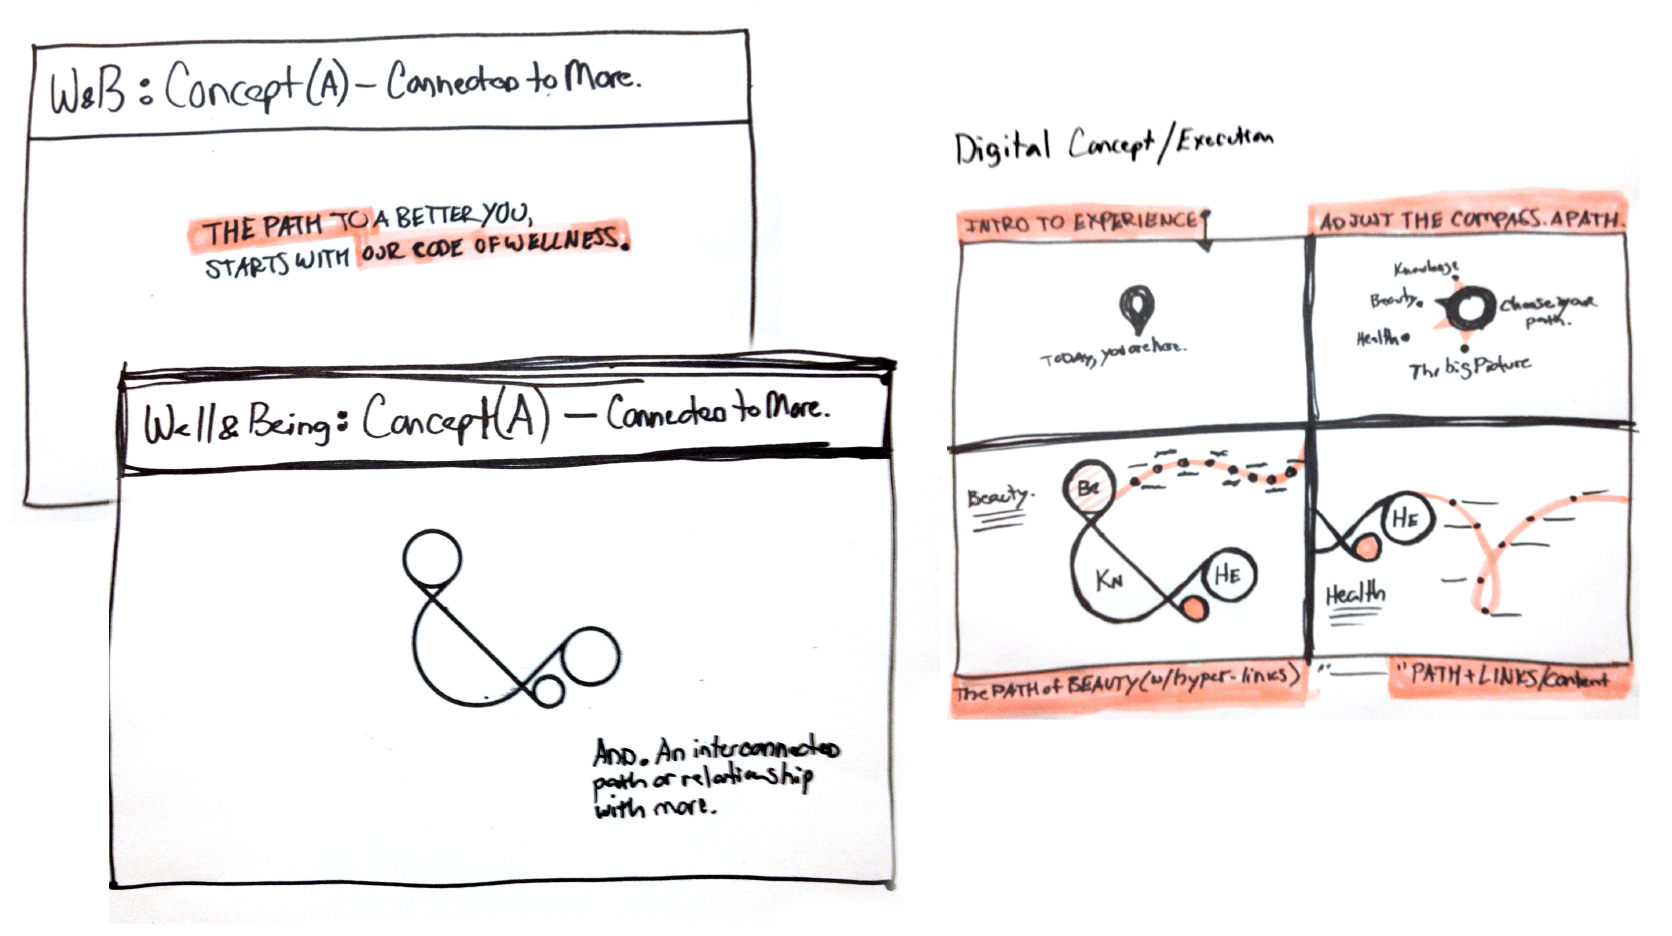 W&B: Concept(A) – Connected to More.
THE PATH TO A BETTER YOU,
STARTS WITH OUR CODE OF WELLNESS.
Well & Being: Concept(A) – Connected to More.
AND. An interconnected
path or relationship
with more.
Digital Concept/Execution
INTRO TO EXPERIENCE
TODAY, you are here.
ADJUST THE COMPASS. A PATH.
Knowledge
Beauty
Health
The big Picture
Choose your
path.
Beauty.
Be
KN
HE
The PATH of BEAUTY (w/hyper-links)
HE
Health
" PATH + LINKS/Content